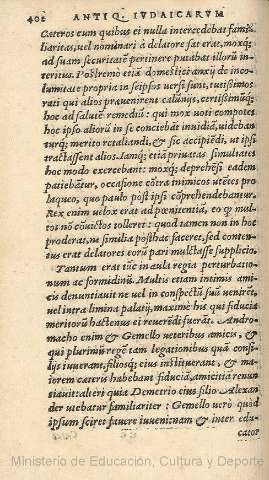 402 ANTIQ. IVDAICARVM
Cæteros cum quibus ei nulla intercedebat fami-
liaritas, uel nominari à delatore sat erat, moxq;
ad suam securitatē pertinere putabat illorū in-
teritus. Postremo etiā domestici anxij de inco-
lumitate propria in seipsos uersi sunt, tutissimos
rati qui alios præuenirent calūnijs, certissimūq;
hoc ad salutē remediū: qui mox uoti compotes
hoc ipso aliorū in se conciebāt inuidiā, uideban
turq; merito retaliandi, & sic accipiēdi, ut ipsi
tractassent alios. Iamq; etiā priuatas simultates
hoc modo exercebant: moxq; deprehēsi eadem
patiebātur, occasione cōtra inimicos utētes pro
laqueo, quo paulo pòst ipsi cōprehendebantur.
Rex enim uelox erat ad pœnitentiā, eo ꝙ mul-
tos nō cōuictos tolleret: quod tamen non in hoc
proderat, ne similia posthac faceret, sed conten-
tus erat delatores eorū pari mulctasse supplicio.
Tantum erat tūc in aula regia perturbatio-
num ac formidinū. Multis etiam intimis ami-
cis denuntiauit ne uel in conspectū suū uenirēt,
uel intra limina palatij, maximè his qui fiducia
meritorū hactenus ei reuerēdi fuerāt. Andro-
macho enim & Gemello ueteribus amicis, &
qui plurimū regē tam legationibus quā consi-
lijs iuuerant, filiosq; eius instituerant, & ma-
iorem cæteris habebant fiduciā, amicitiā renun
tiauit: alteri quia Demetrio eius filio Alexan
der utebatur familiariter: Gemello uerò quòd
ipsum sciret fauere iuuenizam & inter edu-
cato?
Ministerio de Educación, Cultura y Deporte